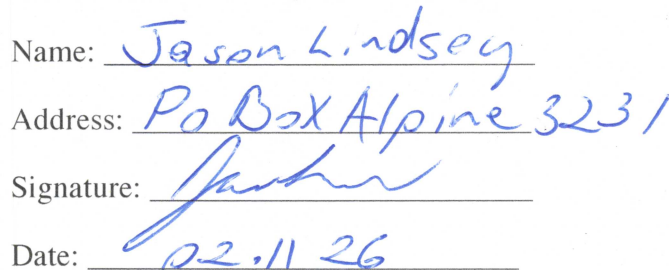 Name: Jason Lindsey
Address: PO Box Alpine 3231
Signature:
Date: 02.11 26